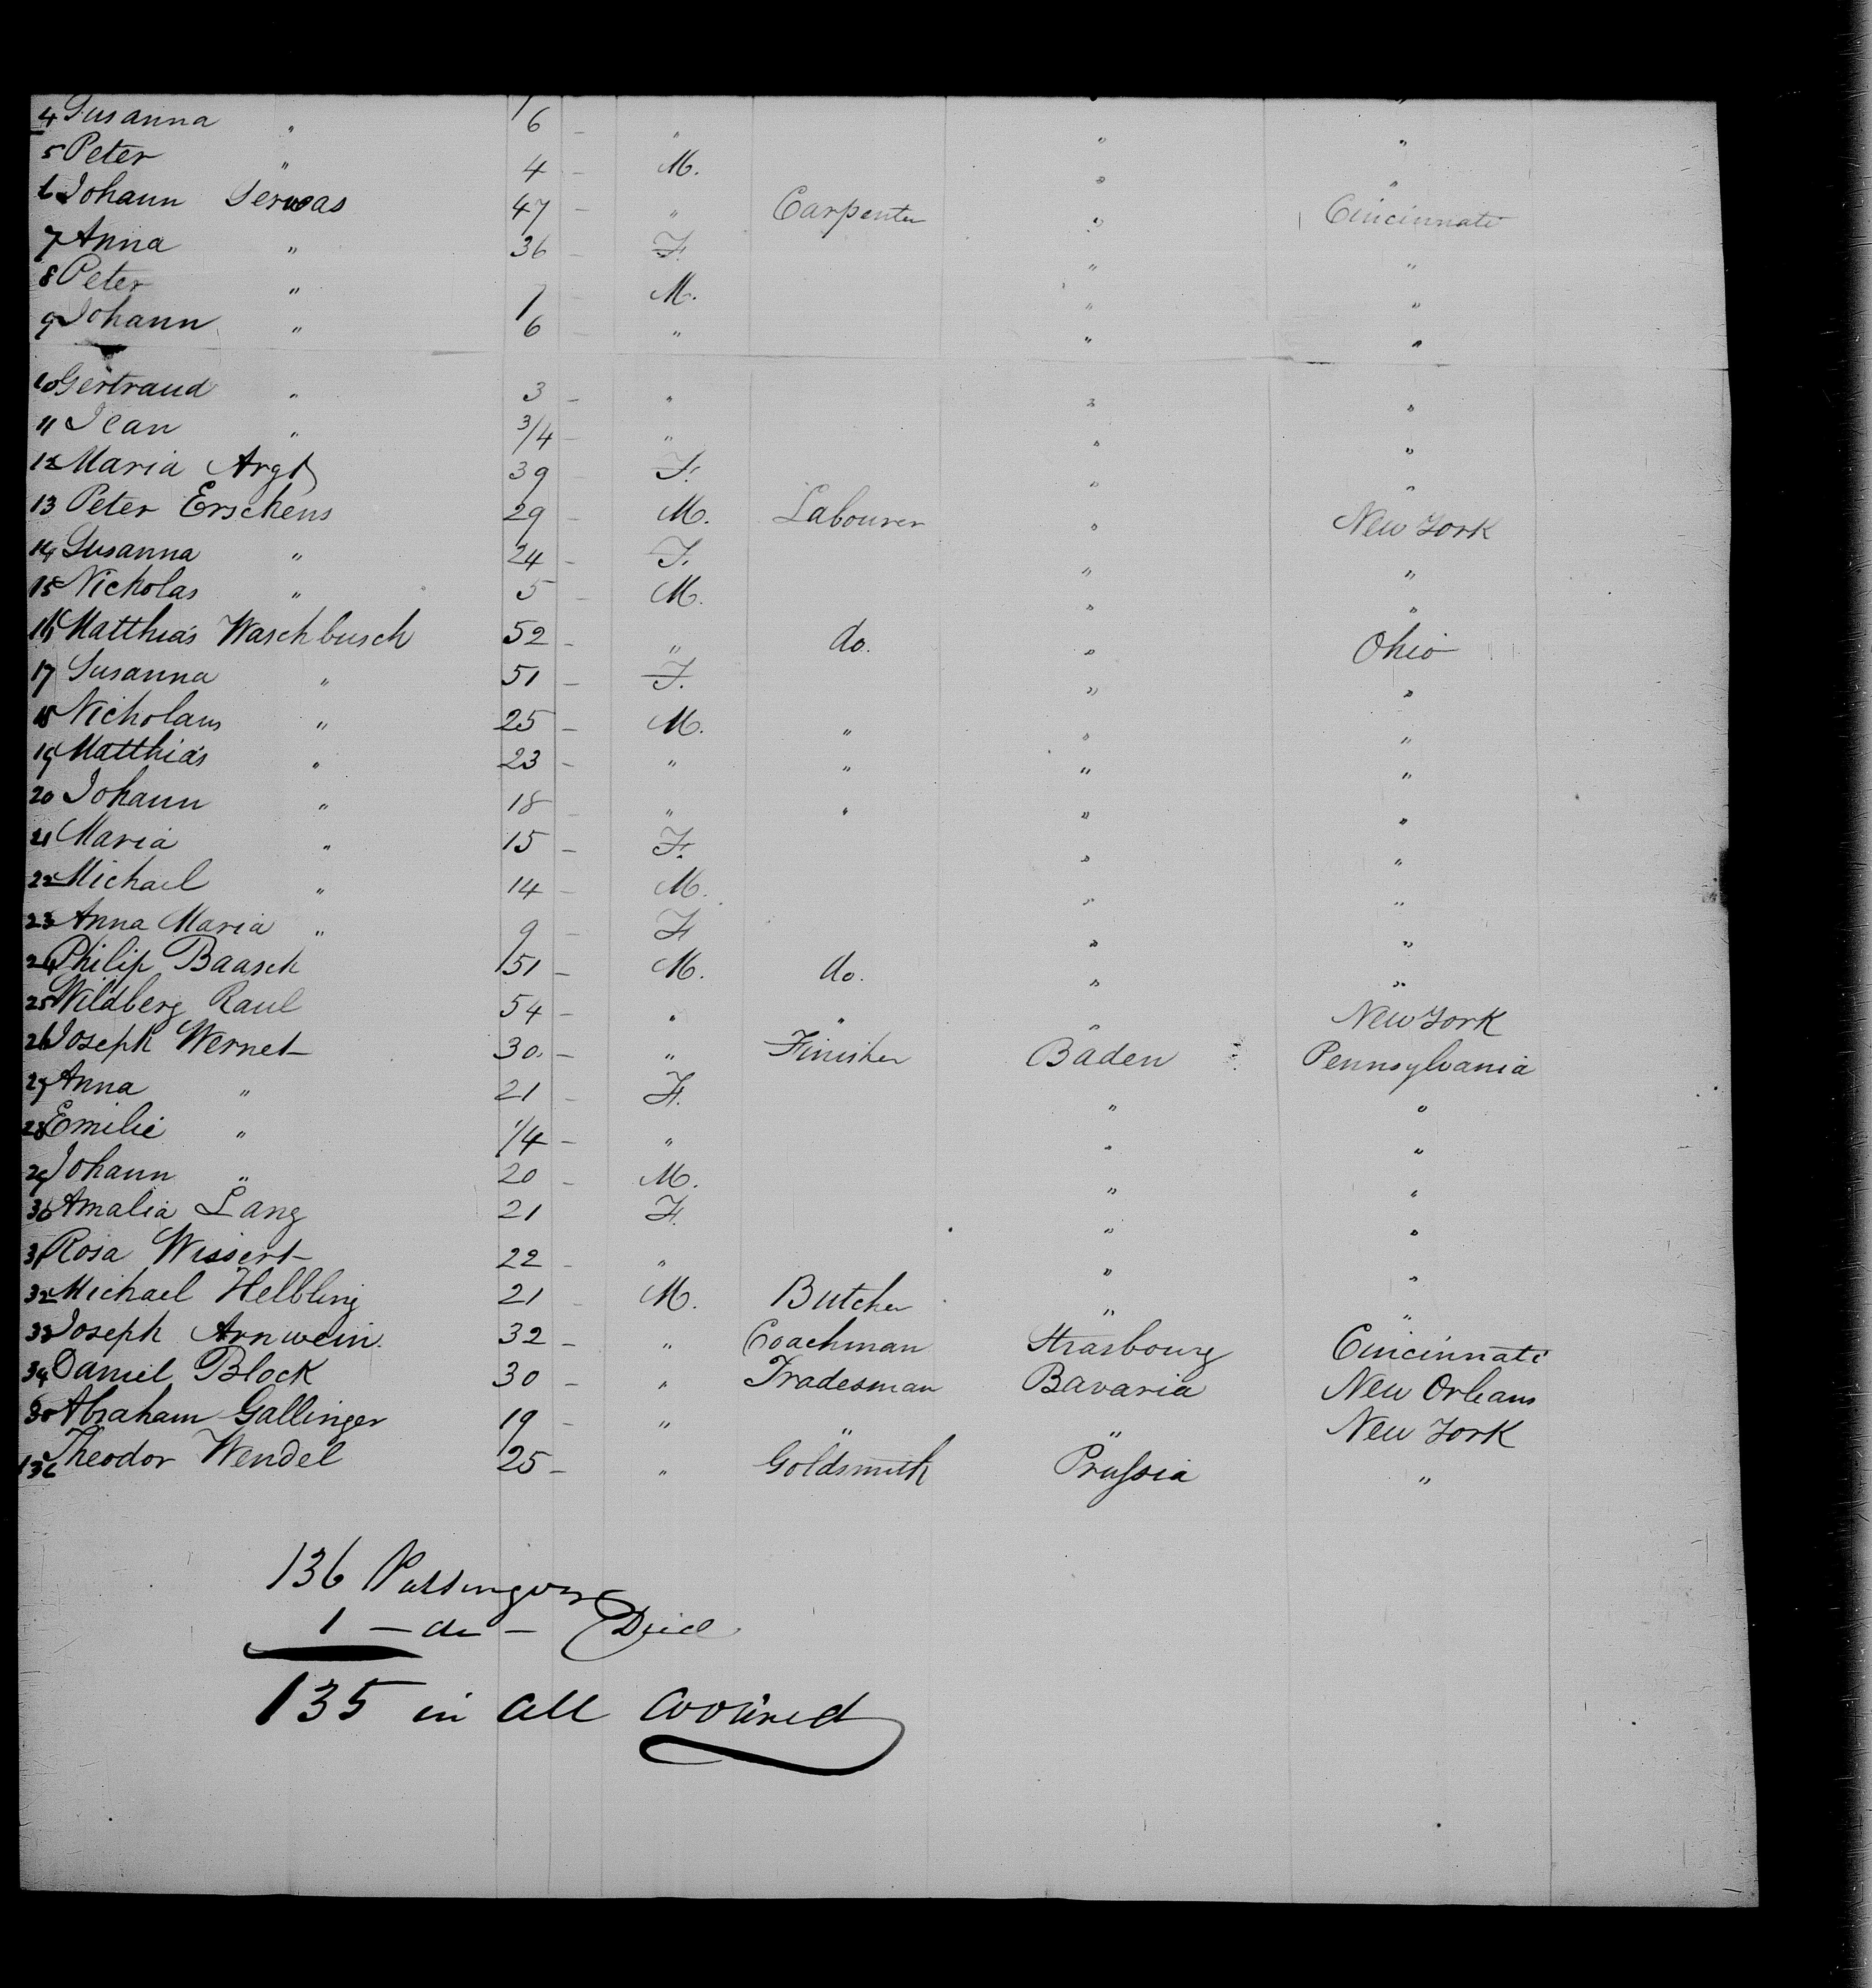 4 Susanna " 6 - " " "
5 Peter " 4 - M. " "
6 Johann Serwas 47 - " Carpenter " Cincinnati
7 Anna " 36 - F. " "
8 Peter " 7 - M. " "
9 Johann " 6 - " " "
10 Gertraud " 3 - " " "
11 Jean " 3/4 - " " "
12 Maria Argt 39 - F. " "
13 Peter Erschens 29 - M. Labourer " New York
14 Susanna " 24 - F. " "
15 Nicholas " 5 - M. " "
16 Matthias Waschbusch 52 - " do. " Ohio
17 Susanna " 51 - F. " "
18 Nicholaus " 25 - M. " " "
19 Matthias " 23 - " " " "
20 Johann " 18 - " " " "
21 Maria " 15 - F. " "
22 Michael " 14 - M. " "
23 Anna Maria " 9 - F " "
24 Philip Baasch 51 - M. do. " "
25 Wildberg Raul 54 - " " " New York
26 Joseph Wernet 30. - " Finisher Baden Pennsylvania
27 Anna " 21 - F. " "
28 Emilie " 1/4 - " " "
29 Johann " 20 - M. " "
30 Amalia Lang 21 - F. " "
31 Rosa Wissert 22 - " " "
32 Michael Helbling 21 - M. Butcher " "
33 Joseph Arnwein. 32 - " Coachman Strasbourg Cincinnati
34 Daniel Block 30 - " Tradesman Bavaria New Orleans
35 Abraham Gallinger 19 - " " " New York
136 Theodor Wendel 25 - " Goldsmith Prussia "
136 Passengers
1 - do - Died
135 in all arrived